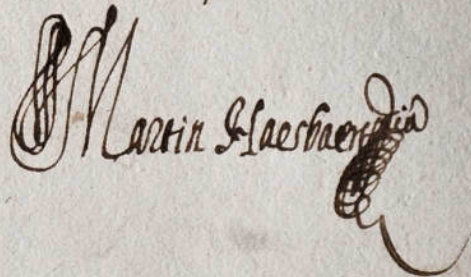 Martin Haesbaert